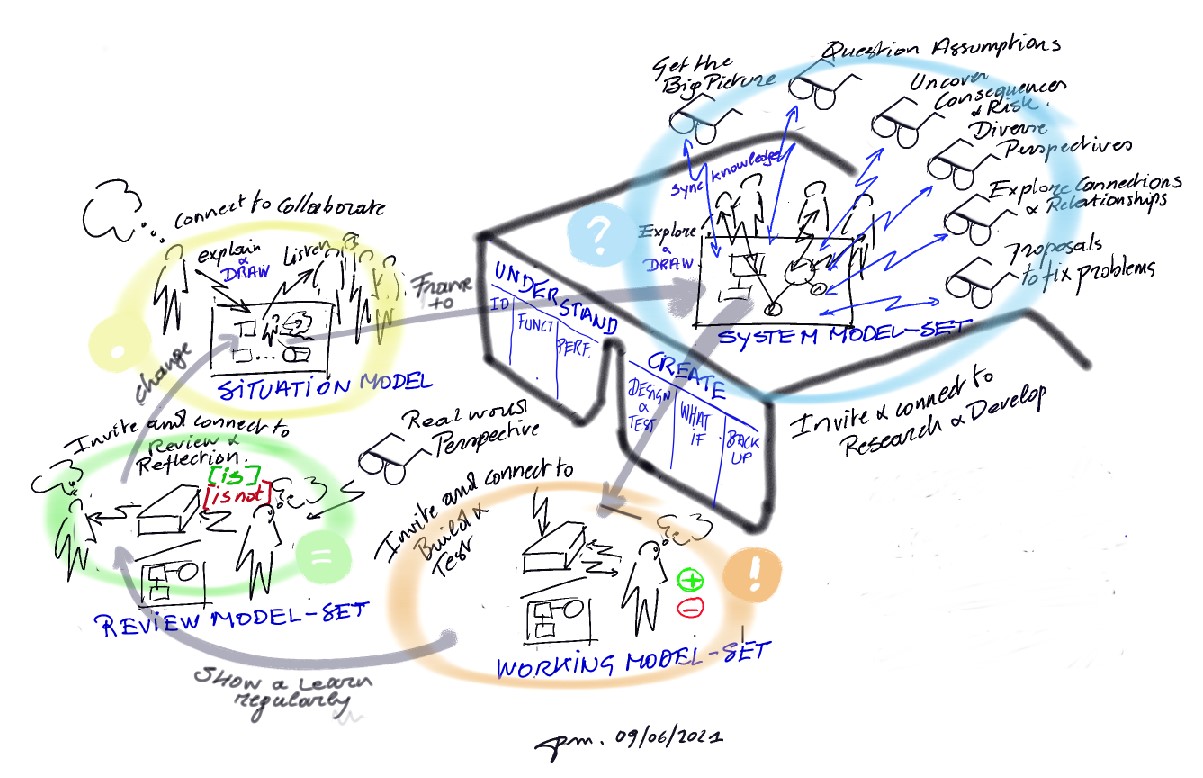 Get the
Big Picture
Question Assumptions
Uncover
Consequences
& Risk.
Diverse
Perspectives
Explore Connections
& Relationships
Proposals
to fix problems
sync knowledge
?
Explore
&
DRAW
SYSTEM MODEL-SET
Connect to Collaborate
explain
&
DRAW
Listen
SITUATION MODEL
Frame
to
UNDERSTAND
ID
FUNCT
PERF.
CREATE
DESIGN
&
TEST
WHAT
IF
BACK
UP
Invite & connect to
Research & Develop
change
Invite and connect to
Review &
Reflection
[is]
[is not]
=
REVIEW MODEL-SET
Real world
Perspective
Invite and connect to
Build &
Test
!
+
-
WORKING MODEL-SET
SHOW & Learn
regularly
pm. 09/06/2021